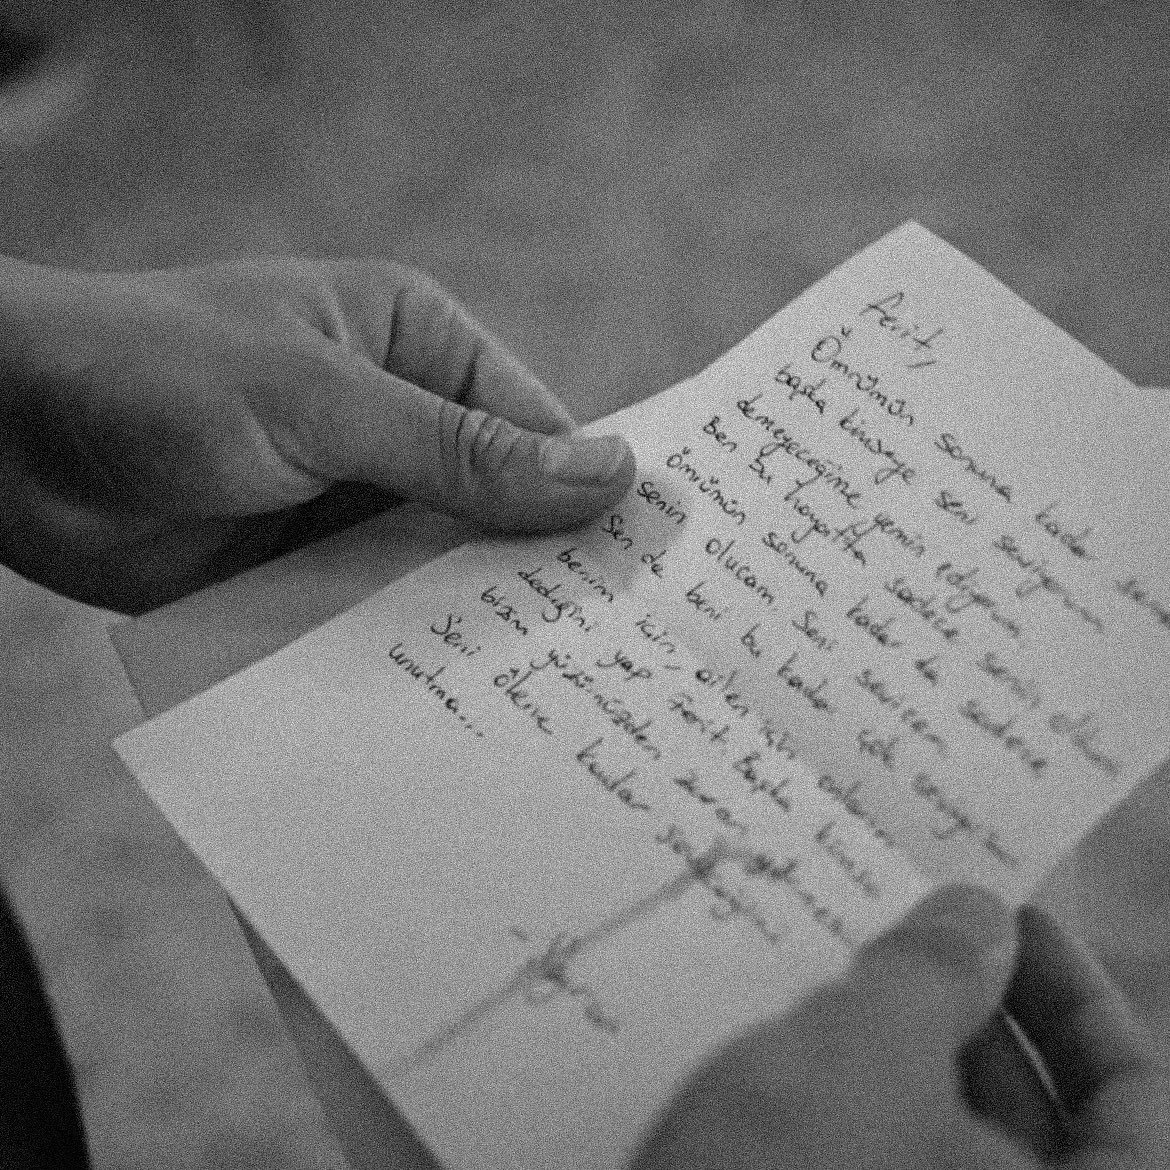 Ferit,
Ömrümün sonuna kadar
başka kimseye seni seviyorum
demeyeceğime yemin ediyorum
Ben bu hayatta sadece senin oldum
Ömrümün sonuna kadar da sadece
senin olucam Seni sevicem
Sen de beni bu kadar çok
benim için, ailen için onların
dediğini yap Ferit Başka
bizim yüzümüzden zarar
Seni ölene kadar
unutma...